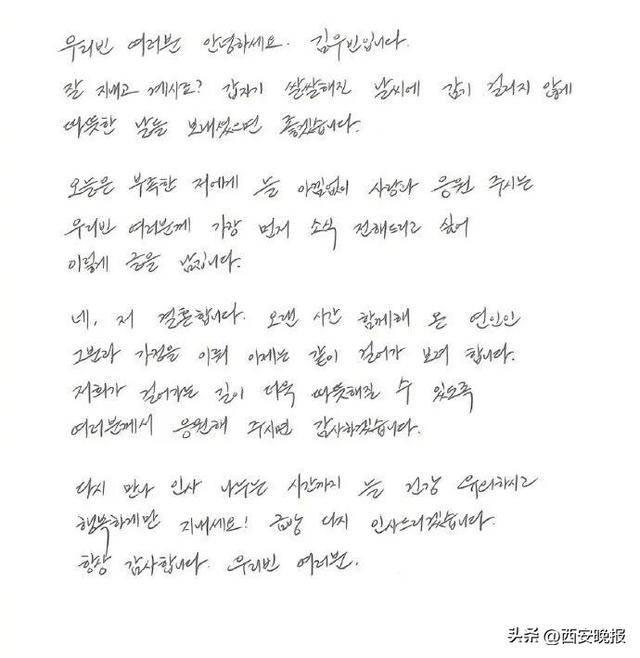 우리빈 여러분 안녕하세요. 김우빈입니다.
잘 지내고 계시죠? 갑자기 쌀쌀해진 날씨에 감기 걸리지 않게
따뜻한 날들 보내셨으면 좋겠습니다.
오늘은 부족한 저에게 늘 아낌없이 사랑과 응원 주시는
우리빈 여러분께 가장 먼저 소식 전해드리고 싶어
이렇게 글을 남깁니다.
네, 저 결혼합니다. 오랜 시간 함께해 온 연인인
그분과 가정을 이뤄 이제는 같이 걸어가 보려 합니다.
저희가 걸어가는 길이 더욱 따뜻해질 수 있도록
여러분께서 응원해 주시면 감사하겠습니다.
다시 만나 인사 나누는 시간까지 늘 건강 유의하시고
행복하게만 지내세요! 금방 다시 인사드리겠습니다.
항상 감사합니다. 우리빈 여러분.
头条 @西安晚报